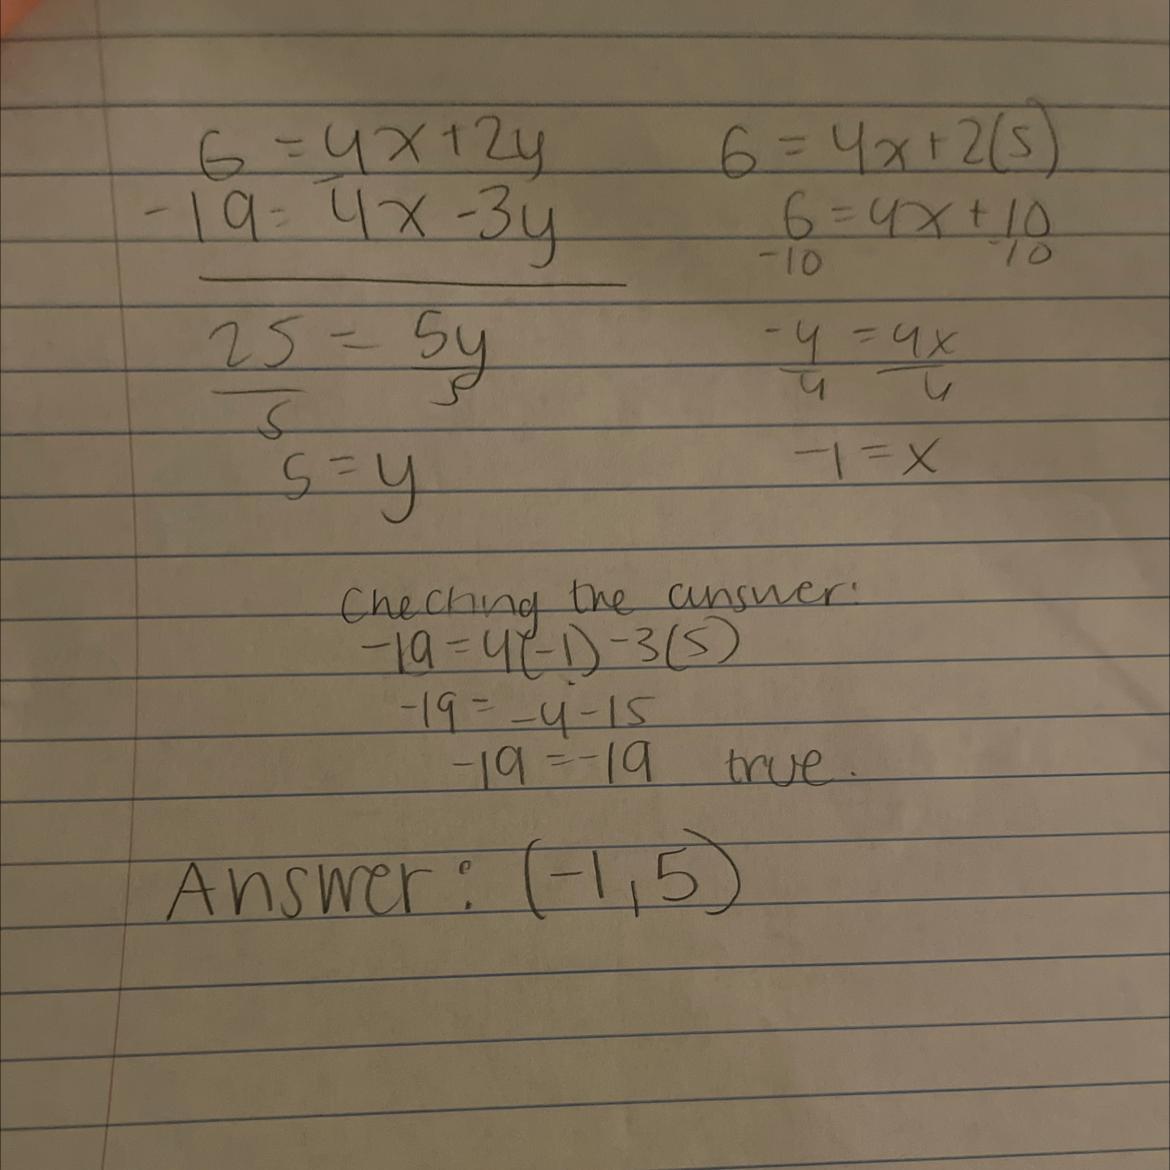 6 = 4x + 2y
-19 = 4x - 3y
25 = 5y
5 5
5 = y
6 = 4x + 2(5)
6 = 4x + 10
-10 -10
-4 = 4x
4 4
-1 = x
Checking the answer:
-19 = 4(-1) - 3(5)
-19 = -4 - 15
-19 = -19 true.
Answer: (-1, 5)